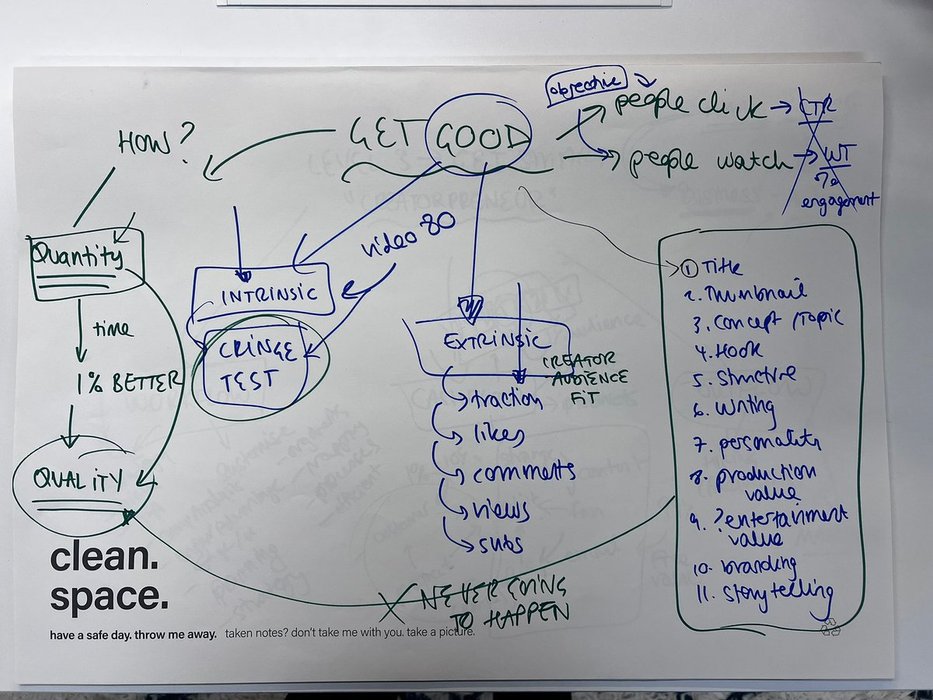 objective
GET GOOD
people click → CTR
people watch → WT
engagement
HOW?
Quantity
time
1% BETTER
QUALITY
video 80
INTRINSIC
CRINGE
TEST
EXTRINSIC
CREATOR
AUDIENCE
FIT
traction
likes
comments
views
subs
① Title
2. Thumbnail
3. Concept / Topic
4. Hook
5. Structure
6. Writing
7. personality
8. production
value
9. ? entertainment
value
10. branding
11. storytelling
NEVER GOING
TO HAPPEN
clean.
space.
have a safe day. throw me away. taken notes? don't take me with you. take a picture.